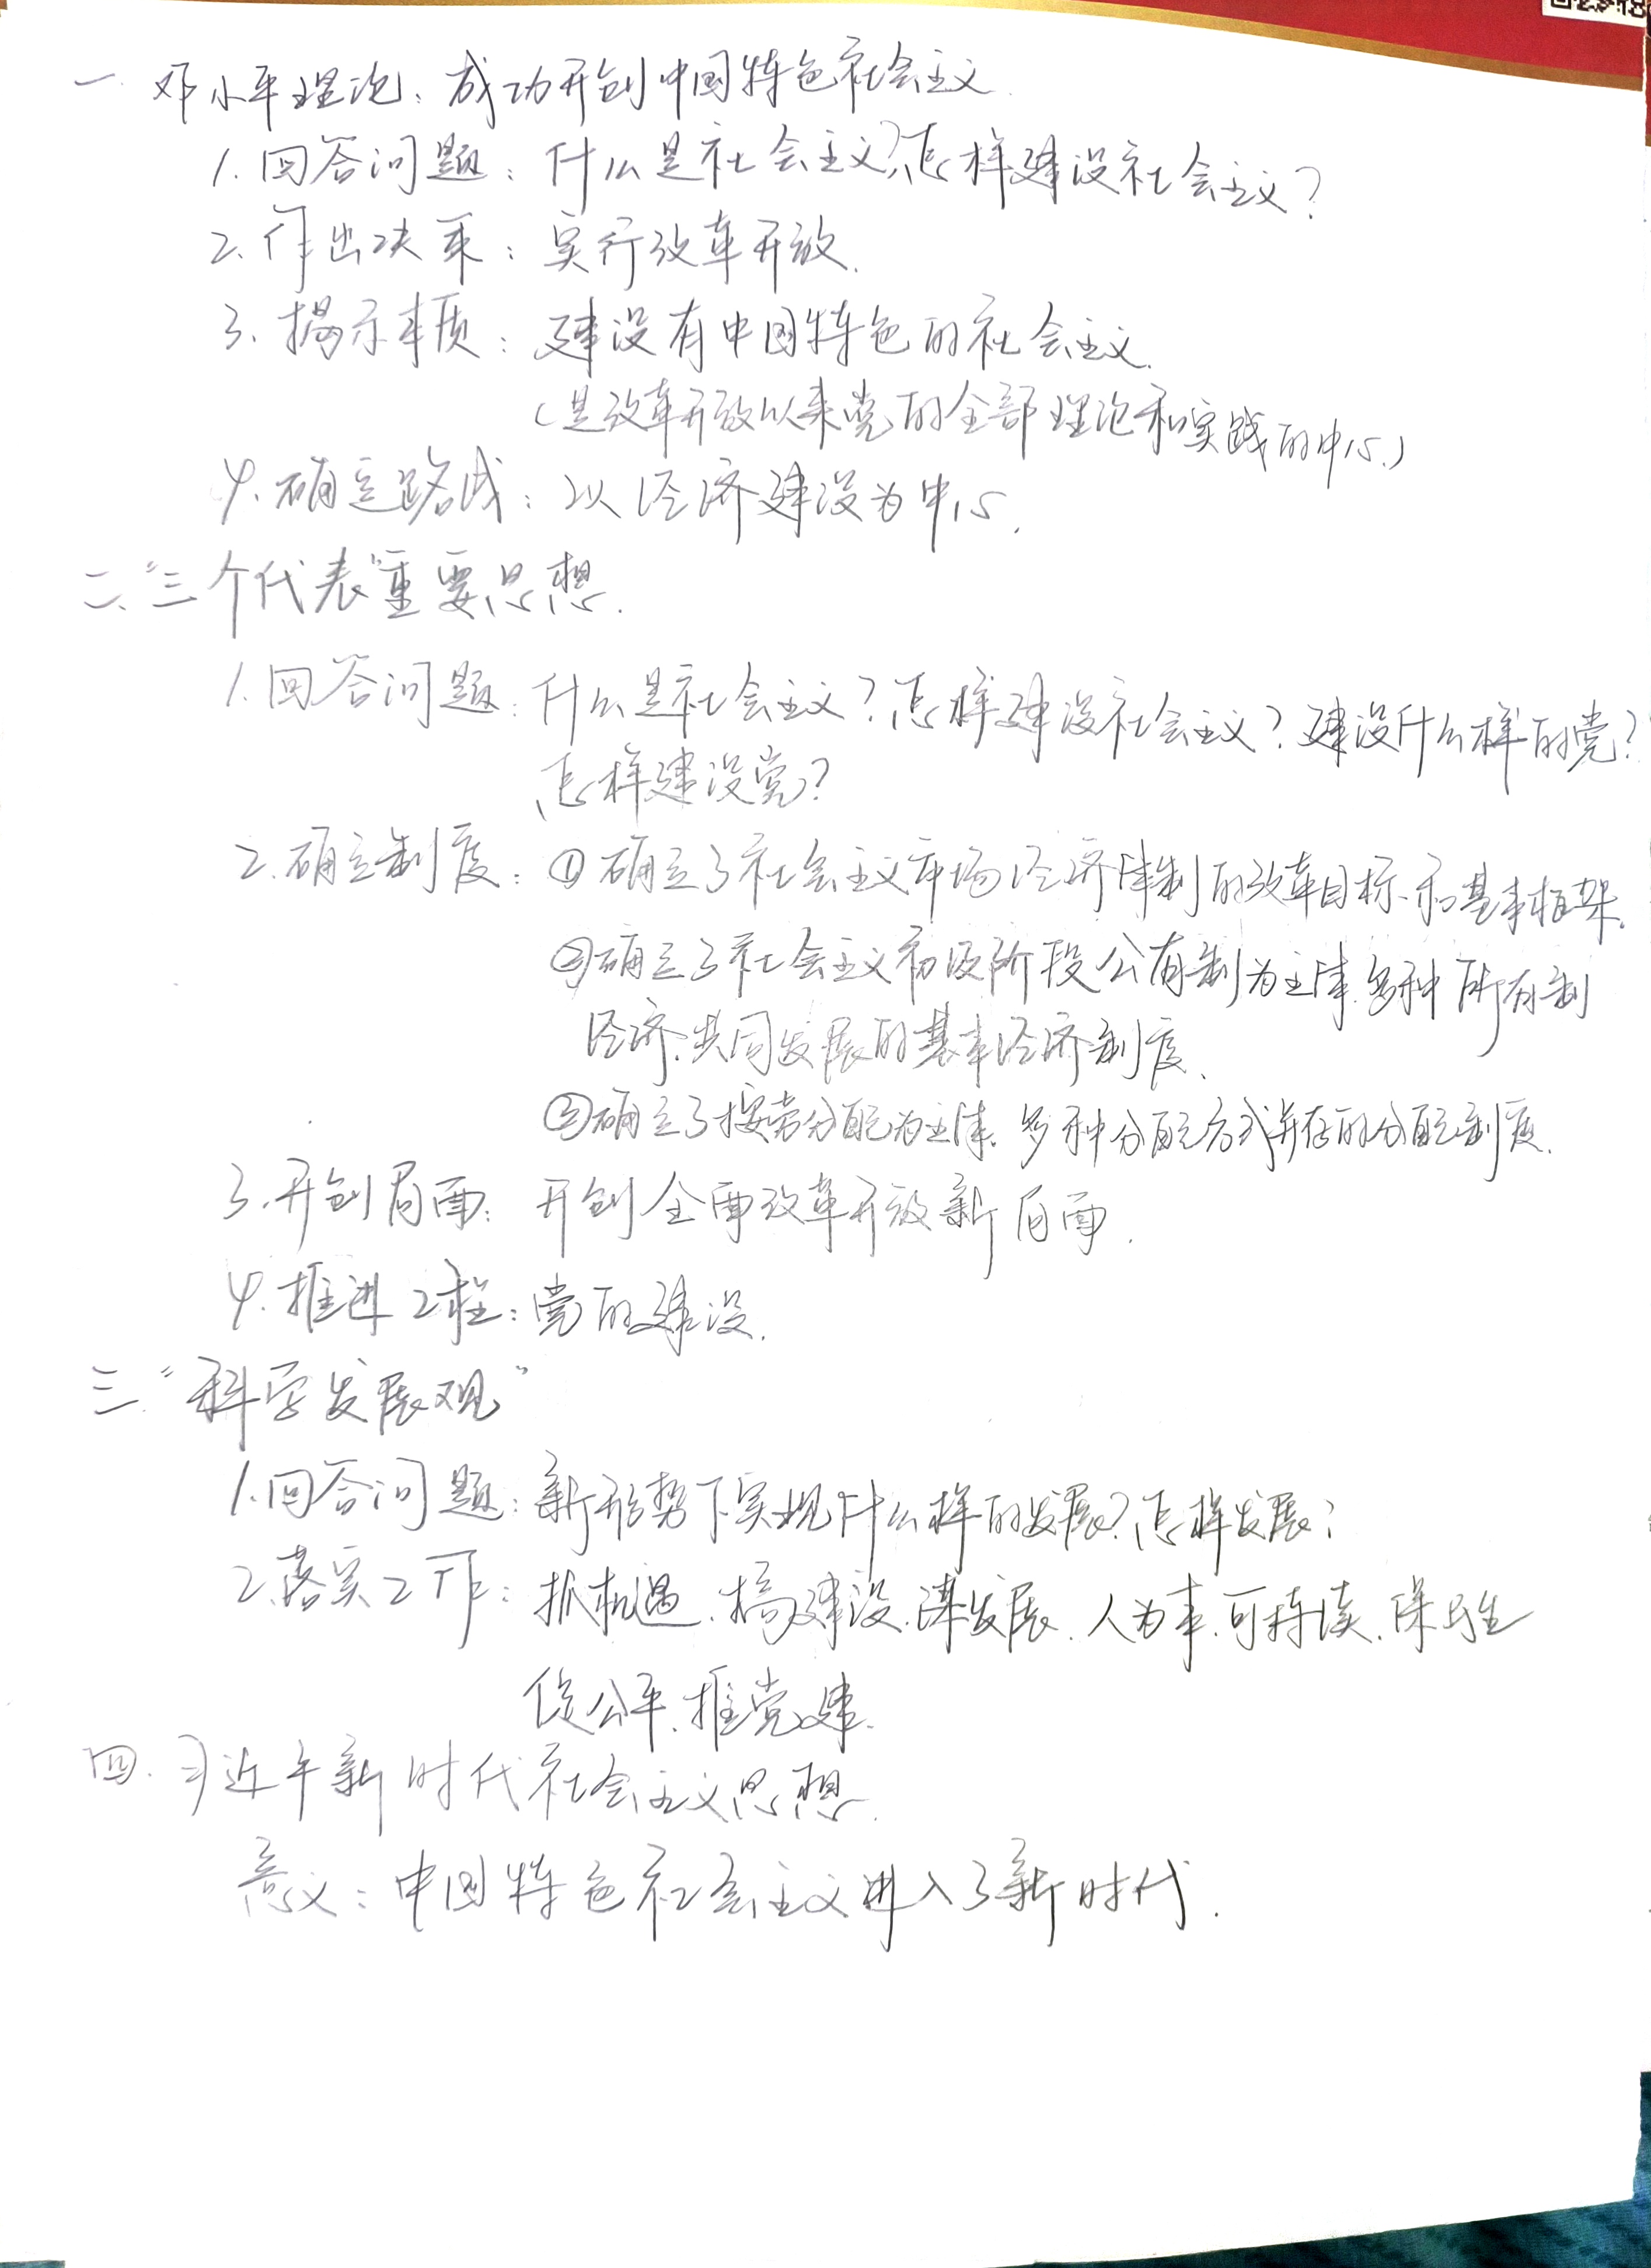 一 邓小平理论：成功开创中国特色社会主义.
1.回答问题：什么是社会主义?怎样建设社会主义？
2.作出决策：实行改革开放.
3.揭示本质：建设有中国特色的社会主义.
（是改革开放以来党的全部理论和实践的中心.）
4.确定路线：以经济建设为中心.
二、“三个代表”重要思想.
1.回答问题：什么是社会主义？怎样建设社会主义？建设什么样的党？
怎样建设党？
2.确立制度：①确立了社会主义市场经济体制的改革目标和基本框架.
②确立了社会主义初级阶段公有制为主体.多种所有制
经济.共同发展的基本经济制度.
③确立了按劳分配为主体.多种分配方式并存的分配制度.
3.开创局面：开创全面改革开放新局面.
4.推进工程：党的建设.
三.“科学发展观”
1.回答问题：新形势下实现什么样的发展？怎样发展？
2.落实工作：抓机遇.搞建设.谋发展.人为本.可持续.保民生
促公平.推党建.
四.习近平新时代社会主义思想.
意义：中国特色社会主义进入了新时代.